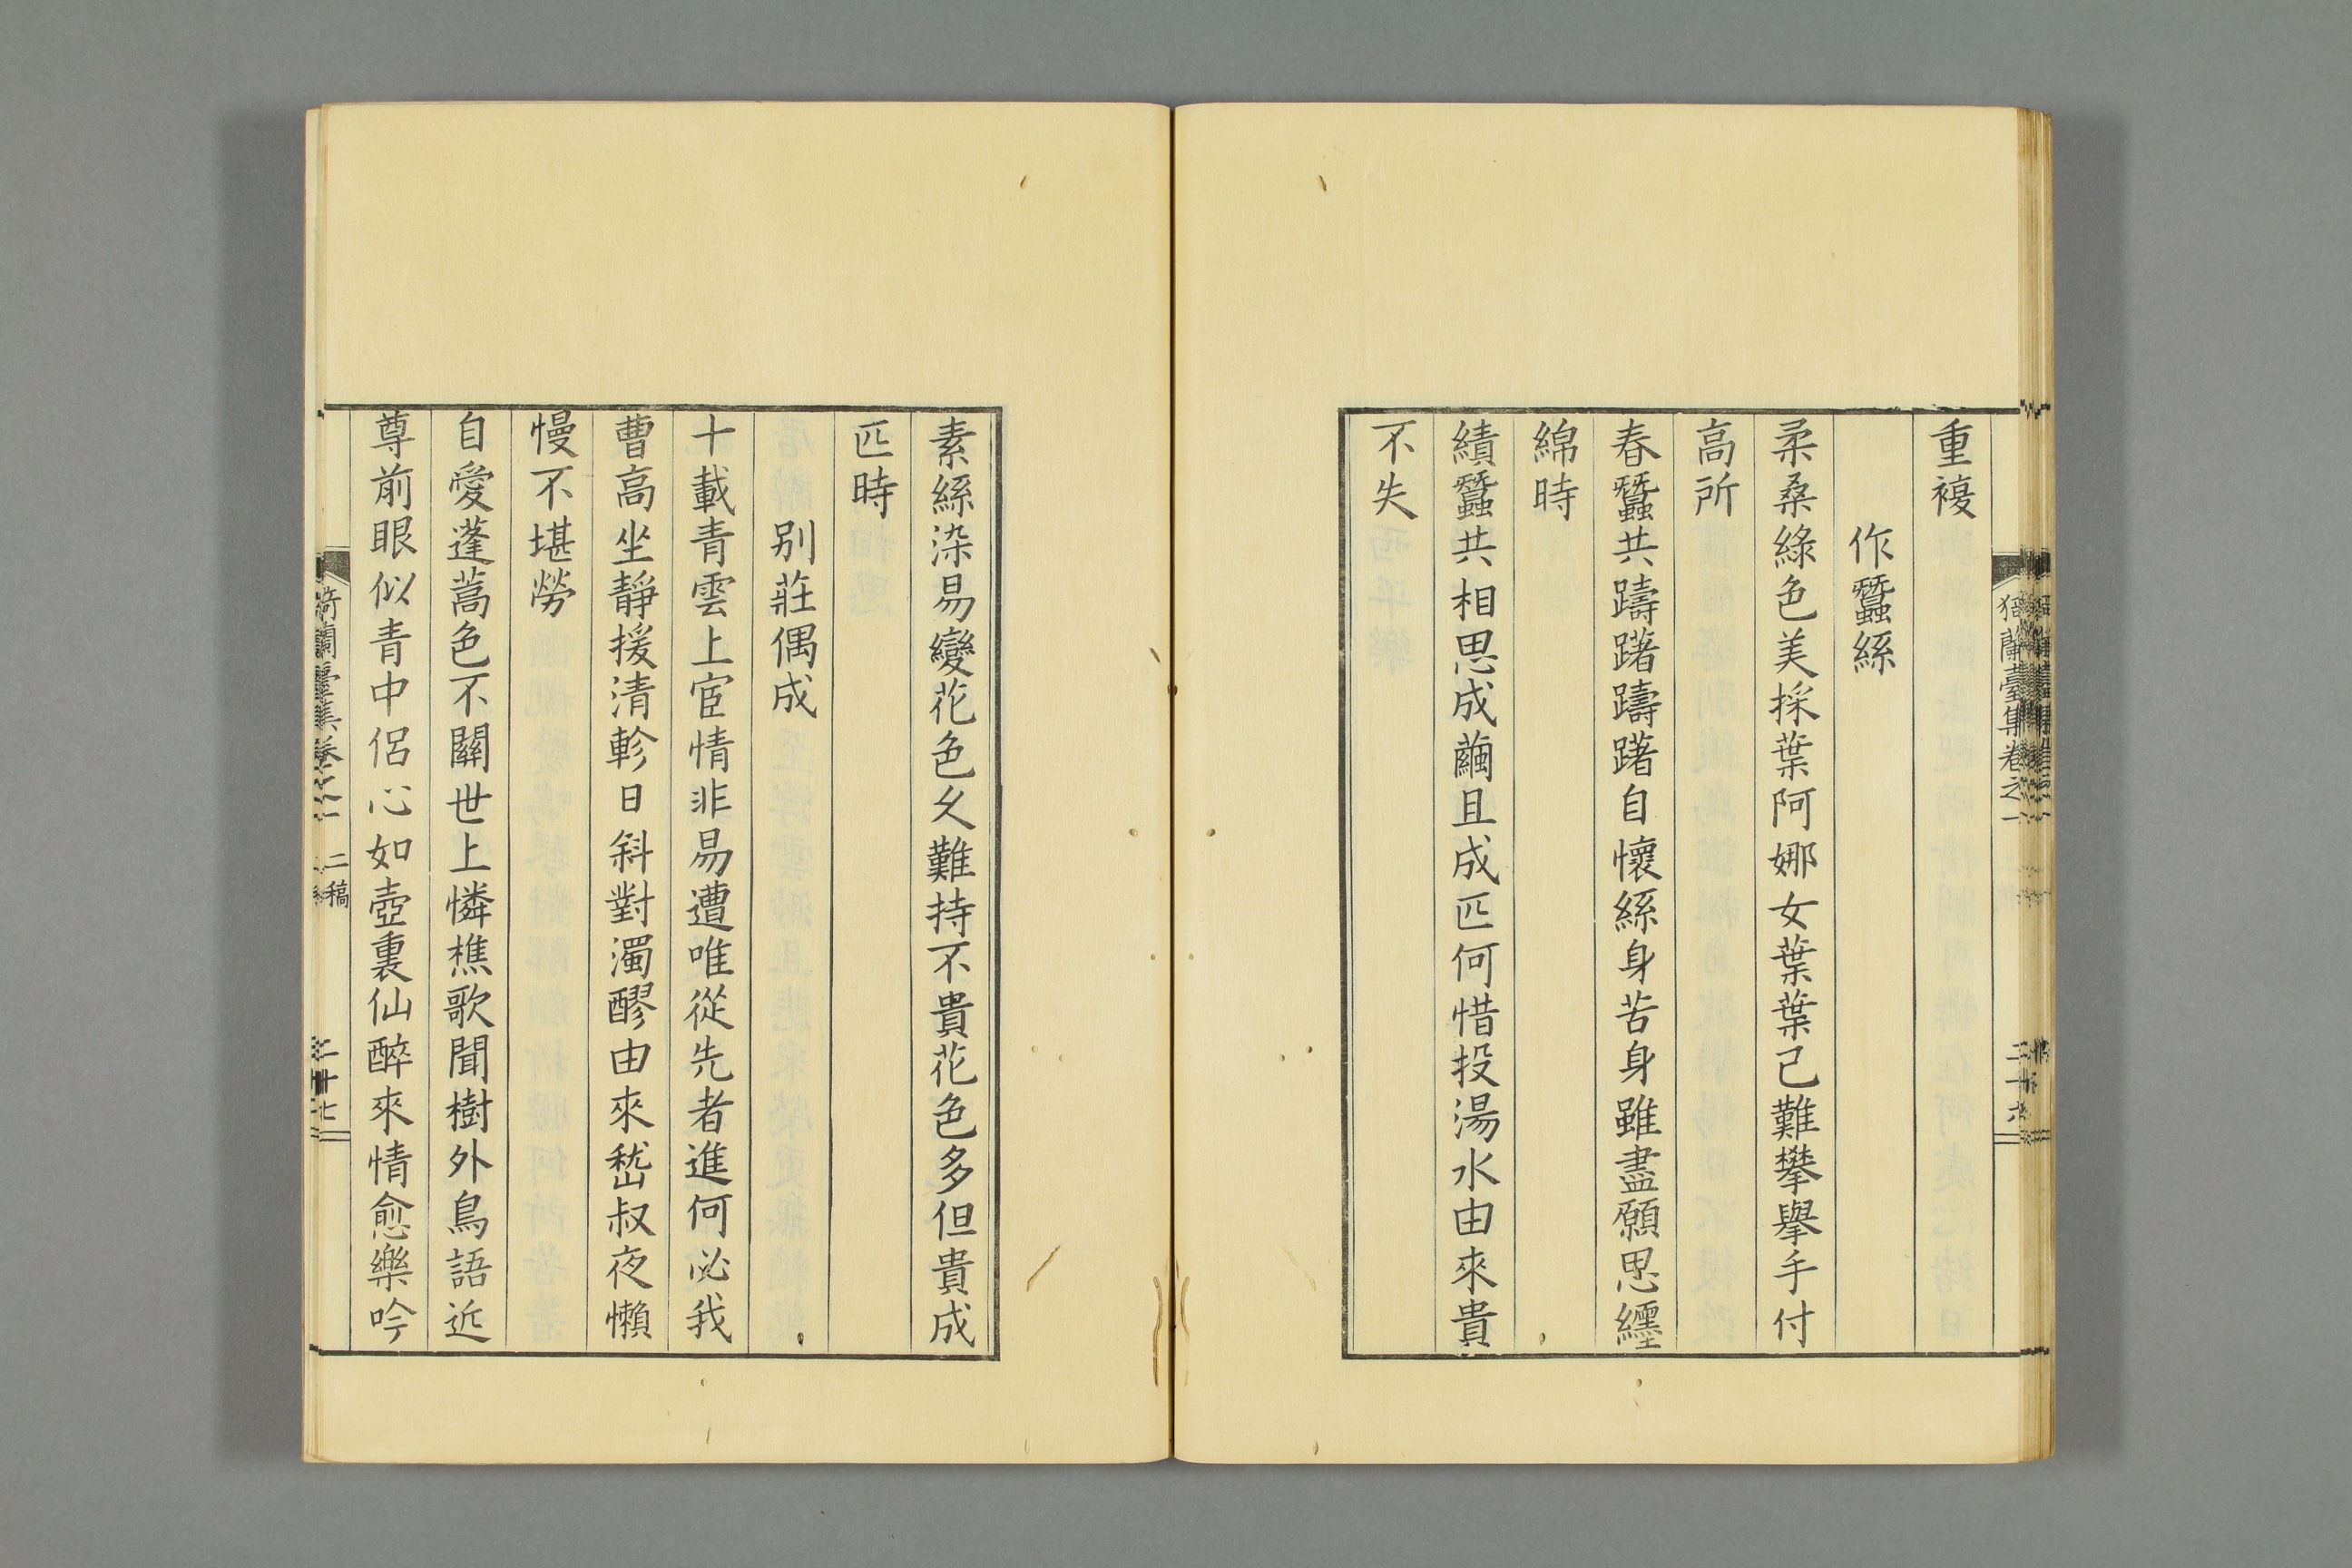 重複
作蠶絲
柔桑綠色美採葉阿娜女葉葉已難攀擧手付
高所
春蠶共躊躇躊躇自懷絲身苦身雖盡願思纒
綿時
績蠶共相思成繭且成匹何惜投湯水由來貴
不失
猗蘭臺集卷之一
二十六
素絲染易變花色久難持不貴花色多但貴成
匹時
別莊偶成
十載青雲上宦情非易遭唯從先者進何必我
曹高坐靜援清軫日斜對濁醪由來嵆叔夜懶
慢不堪勞
自愛蓬蒿色不關世上憐樵歌聞樹外鳥語近
尊前眼似青中侶心如壺裏仙醉來情愈樂吟
猗蘭臺集卷之一 二稿
二十七